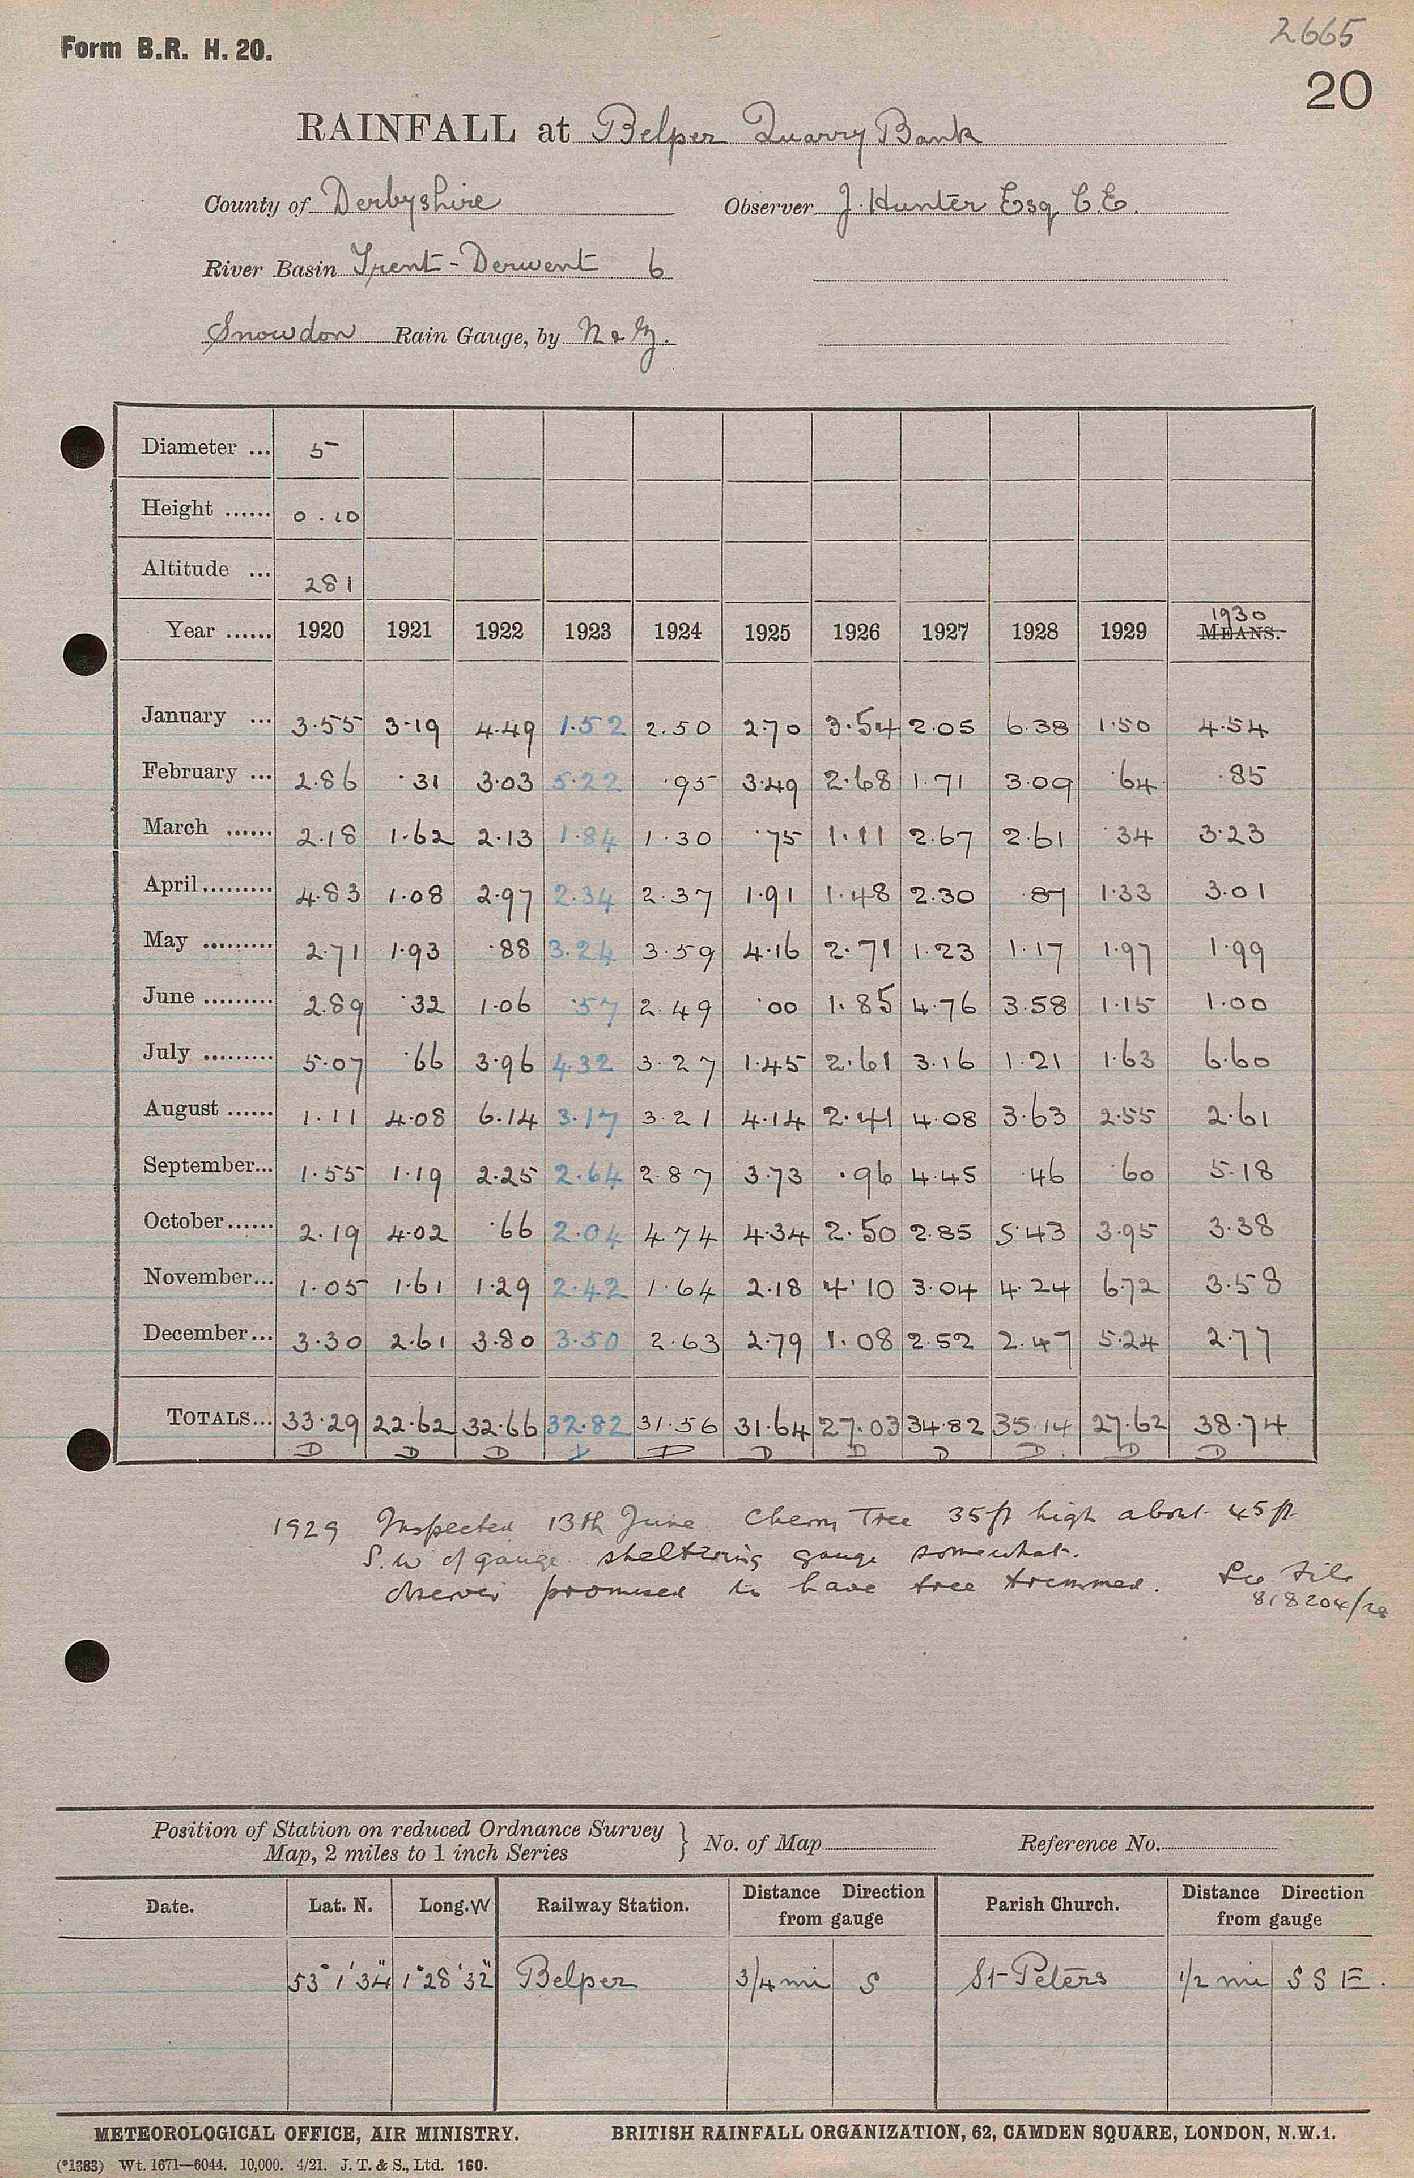 2665
Form B.R. H. 20.
20
RAINFALL at Belper Quarry Bank
County of Derbyshire Observer J. Hunter Esq C.E.
River Basin Trent - Derwent 6
Snowdon Rain Gauge, by N & Z.
Diameter ... 5
Height ...... 0.10
Altitude ... 281
1930
Year ...... 1920 1921 1922 1923 1924 1925 1926 1927 1928 1929 MEANS.
January ... 3.55 3.19 4.49 1.52 2.50 2.70 3.54 2.05 6.38 1.50 4.54
February ... 2.86 .31 3.03 5.22 .95 3.49 2.68 1.71 3.09 .64 .85
March ...... 2.18 1.62 2.13 1.84 1.30 .75 1.11 2.67 2.61 .34 3.23
April ......... 4.83 1.08 2.97 2.34 2.37 1.91 1.48 2.30 .87 1.33 3.01
May ......... 2.71 1.93 .88 3.24 3.59 4.16 2.71 1.23 1.17 1.97 1.99
June ......... 2.89 .32 1.06 .57 2.49 .00 1.85 4.76 3.58 1.15 1.00
July ......... 5.07 .66 3.96 4.32 3.27 1.45 2.61 3.16 1.21 1.63 6.60
August ...... 1.11 4.08 6.14 3.17 3.21 4.14 2.41 4.08 3.63 2.55 2.61
September... 1.55 1.19 2.25 2.64 2.87 3.73 .96 4.45 .46 .60 5.18
October...... 2.19 4.02 .66 2.04 4.74 4.34 2.50 2.85 5.43 3.95 3.38
November... 1.05 1.61 1.29 2.42 1.64 2.18 4.10 3.04 4.24 6.72 3.58
December... 3.30 2.61 3.80 3.50 2.63 2.79 1.08 2.52 2.47 5.24 2.77
TOTALS... 33.29 22.62 32.66 32.82 31.56 31.64 27.03 34.82 35.14 27.62 38.74
D D D D D D D D D D D
1929 Inspected 13th June Cherry Tree 35 ft high about 45 ft
S.W of gauge sheltering gauge somewhat.
Observer promised to have tree trimmed. See File
818204/28
Position of Station on reduced Ordnance Survey
Map, 2 miles to 1 inch Series } No. of Map Reference No.
Date. Lat. N. Long. W Railway Station. Distance Direction from gauge Parish Church. Distance Direction from gauge
53° 1' 34" 1° 28' 32" Belper 3/4 mi S St Peters 1/2 mi S S E.
METEOROLOGICAL OFFICE, AIR MINISTRY. BRITISH RAINFALL ORGANIZATION, 62, CAMDEN SQUARE, LONDON, N.W.1.
(*1383) Wt. 1671—6044. 10,000. 4/21. J. T. & S., Ltd. 160.